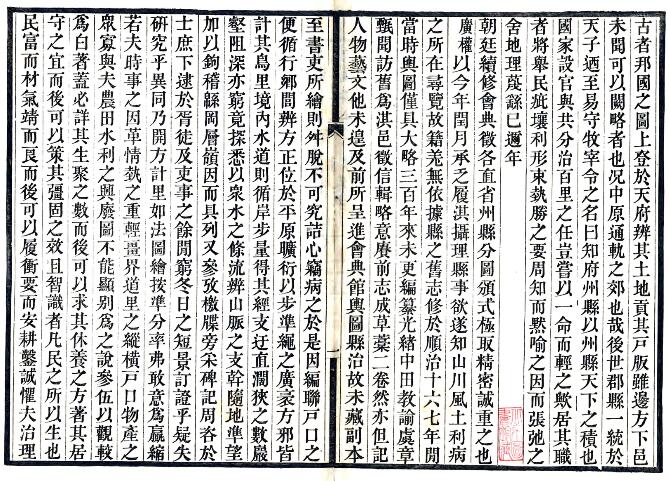 古者邦國之圖上登於天府辨其土地貢其戸版雖邊方下邑
未聞可以闕略者也况中原通軌之郊也哉後世郡縣一統於
天子迺至易守牧宰令之名曰知府州縣以州縣天下之積也
國家設官與共分治百里之任豈嘗以一命而輕之歟居其職
者將舉民疵壤利形東執勝之要周知而黙喻之因而張弛之
舍地理蔑繇已邇年
朝廷續修會典徵各直省州縣分圖頒式極取精密誠重之也
廣權以今年閏月承之履淇攝理縣事欲遂知山川風土利病
之所在尋覽故籍羌無依據縣之舊志修於順治十六七年閒
當時輿圖僅具大略三百年來未更編纂光緒中田教諭虞章
甄聞訪舊為淇邑徵信輯略意賡前志成草藁二卷然亦但記
人物藝文他未遑及前所呈進會典館輿圖縣治故未藏副本
至書吏所繪則舛脫不可究詰心竊病之於是因編聯戸口之
便循行郷閭辨方正位於平原曠衍以步準繩之廣袤方邪皆
計其鳥里境內水道則循岸步量得其經支迂直濶狹之數巖
壑阻深亦窮竟探悉以衆水之條流辨山脈之支幹隨地準望
加以鉤稽緜岡層嶺因而具列又參攷檄牒旁采碑記周咨於
士庶下逮於胥徒及吏事之餘閒窮冬日之短景訂證乎疑失
研究乎異同乃開方計里如法圖繪按準分率弗敢意為贏縮
若夫時事之因革情埶之重輕畺界道里之縱橫戸口物產之
衆寡與夫農田水利之興廢圖不能顯別為之說參伍以觀較
為白著蓋必詳其生聚之數而後可以求其休養之方著其居
守之宜而後可以策其彊固之效且智識者凡民之所以生也
民富而材氣靖而良而後可以履衝要而安耕鑿誠懼夫治理